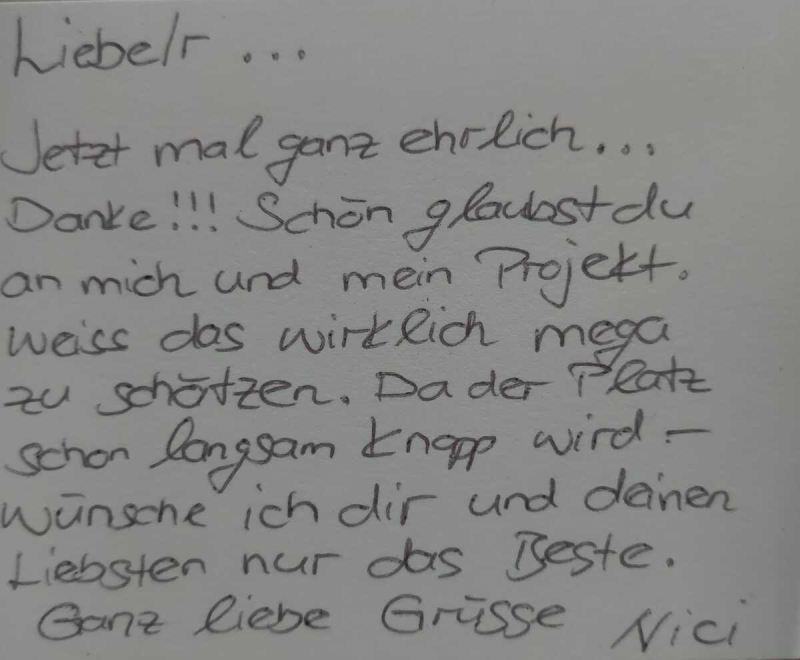 Liebe/r ...
Jetzt mal ganz ehrlich...
Danke!!! Schön glaubst du
an mich und mein Projekt.
Weiss das wirklich mega
zu schätzen. Da der Platz
schon langsam knapp wird –
wünsche ich dir und deinen
Liebsten nur das Beste.
Ganz liebe Grüsse Nici